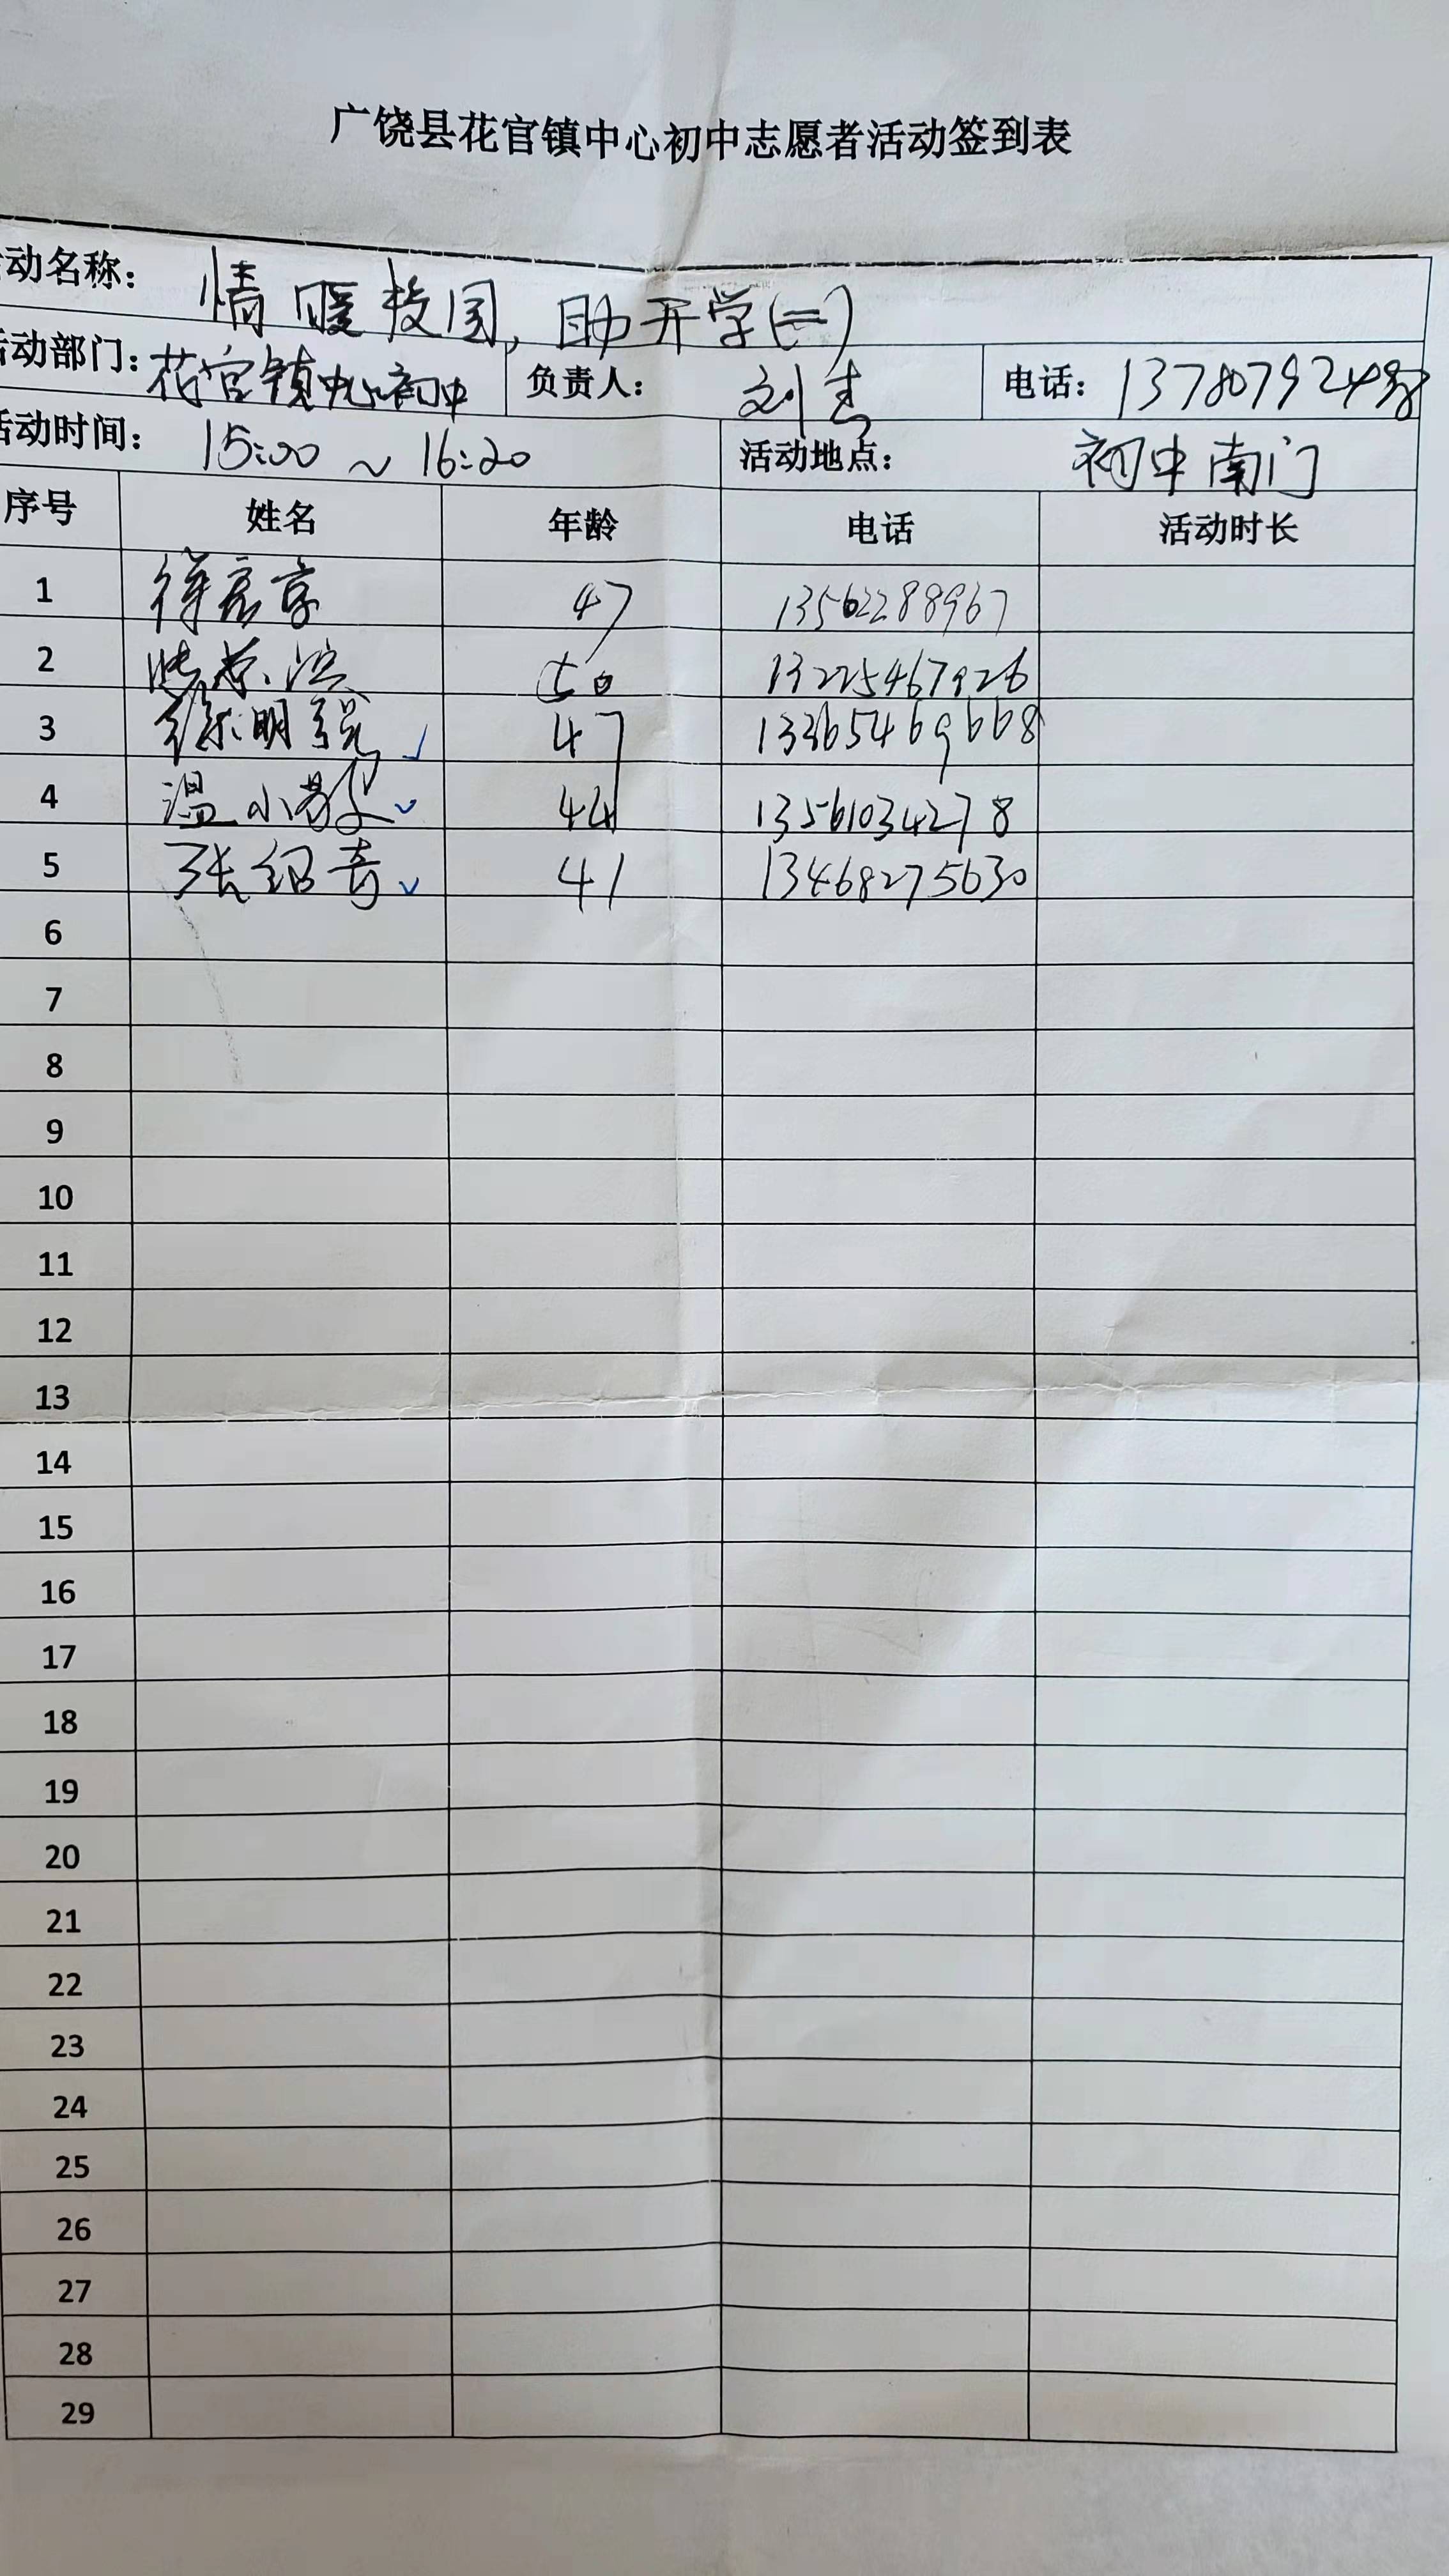 广饶县花官镇中心初中志愿者活动签到表
动名称： 情暖校园，助开学(二)
活动部门： 花官镇中心初中 负责人： 刘 电话： 137807924
活动时间： 15:00 ~ 16:20 活动地点： 初中南门
序号 姓名 年龄 电话 活动时长
1 47 13562288967
2 50 13225467926
3 徐明强 47 13365469668
4 温小 44 13561034278
5 张绍奇 41 13468275630
6
7
8
9
10
11
12
13
14
15
16
17
18
19
20
21
22
23
24
25
26
27
28
29